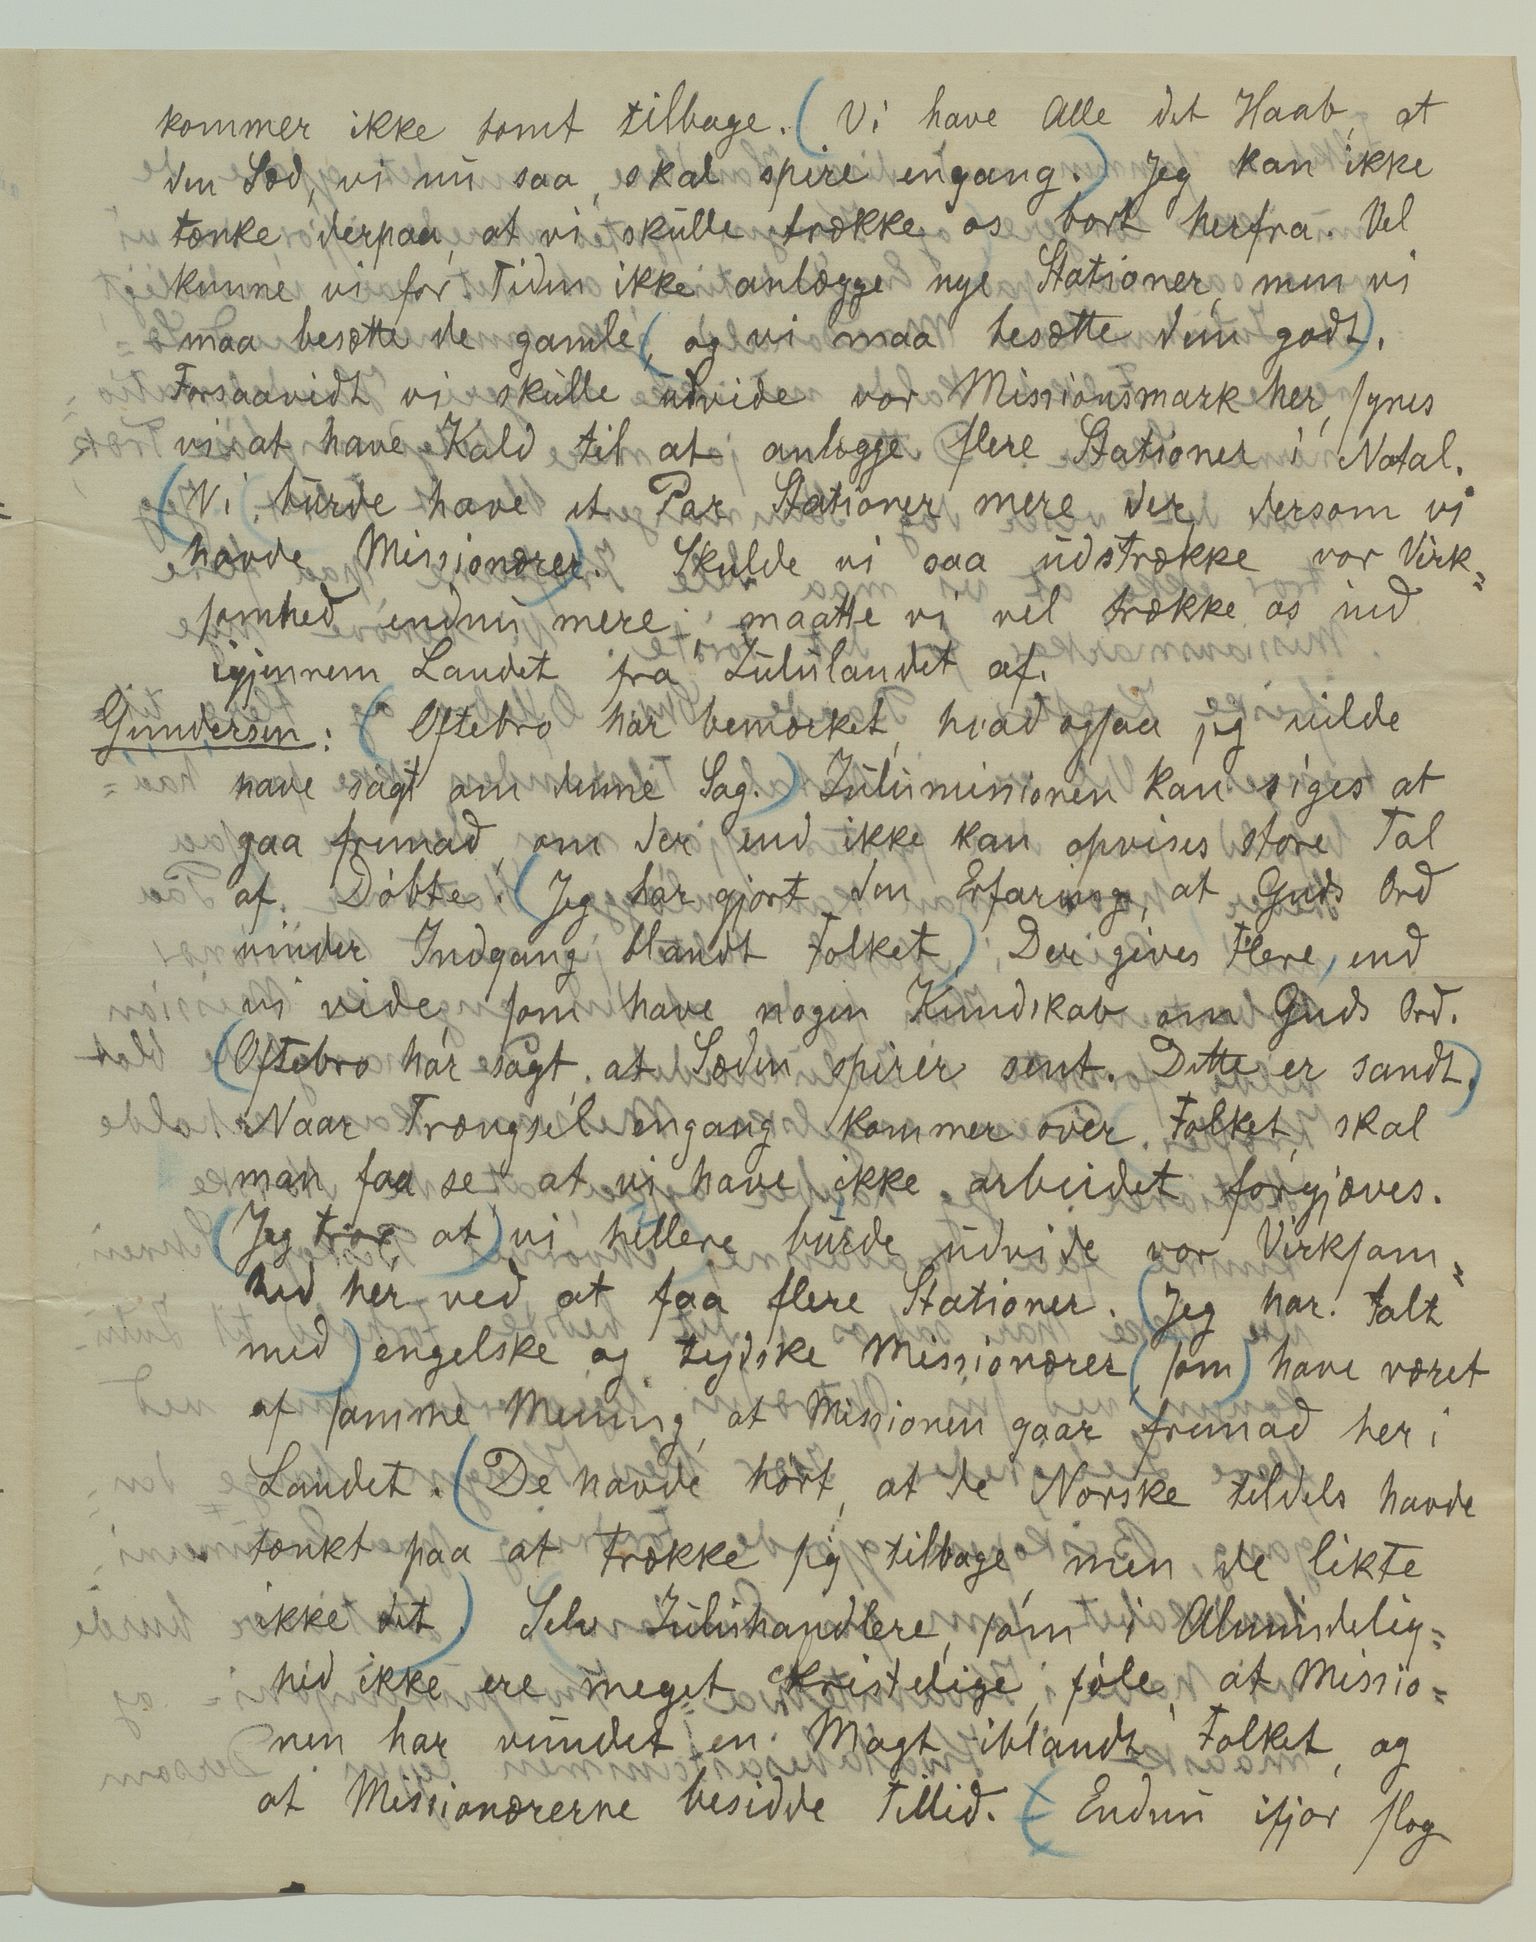 kommer ikke tomt tilbage. (Vi have Alle det Haab, at
den Sæd, vi nu saa, skal spire engang.) Jeg kan ikke
tænke derpaa, at vi skulle trække os bort herfra. Vel
kunne vi for Tiden ikke anlægge nye Stationer, men vi
maa besætte de gamle (, og vi maa besætte dem godt).
Forsaavidt vi skulle udvide vor Missionsmark her, synes
vi at have Kald til at anlægge flere Stationer i Natal.
(Vi burde have et Par Stationer mere der, dersom vi
havde Missionærer). Skulde vi saa udstrække vor Virk=
somhed endnu mere, maatte vi vel trække os ind
igjennem Landet fra Zululandet af.
Gundersen: (Oftebro har bemærket, hvad ogsaa jeg vilde
have sagt om denne Sag.) Zulumissionen kan siges at
gaa fremad, om der end ikke kan opvises store Tal
af Döbte. (Jeg har gjort den Erfaring, at Guds Ord
vinder Indgang blandt Folket.) Der gives Flere, end
vi vide, som have nogen Kundskab om Guds Ord.
(Oftebro har sagt, at Sæden spirer sent. Dette er sandt.)
Naar Trængsel engang kommer over Folket, skal
man faa se, at vi have ikke arbeidet forgjæves.
(Jeg tror, at) vi hellere burde udvide vor Virksom=
hed her ved at faa flere Stationer. (Jeg har talt
med) engelske og tydske Missionærer (, som) have været
af samme Mening, at Missionen gaar fremad her i
Landet. (De havde hört, at de Norske tildels havde
tænkt paa at trække sig tilbage, men de likte
ikke det.) Selv Zuluhandlere, som i Almindelig=
hed ikke ere meget kristelige, föle, at Missio=
nen har vundet en Magt iblandt Folket, og
at Missionærerne besidde Tillid. (Endnu ifjor slog